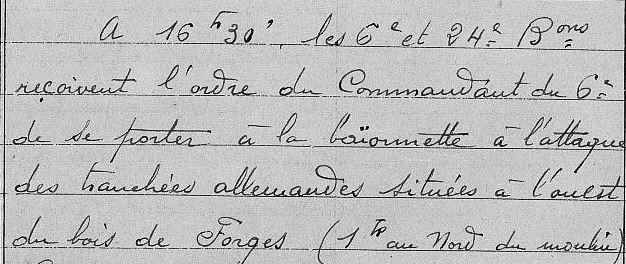 A 16 h 30', les 6e et 24e Bons
reçoivent l'ordre du Commandant du 6e
de se porter à la baïonnette à l'attaque
des tranchées allemandes situées à l'ouest
du bois de Forges (1 au Nord du moulin)